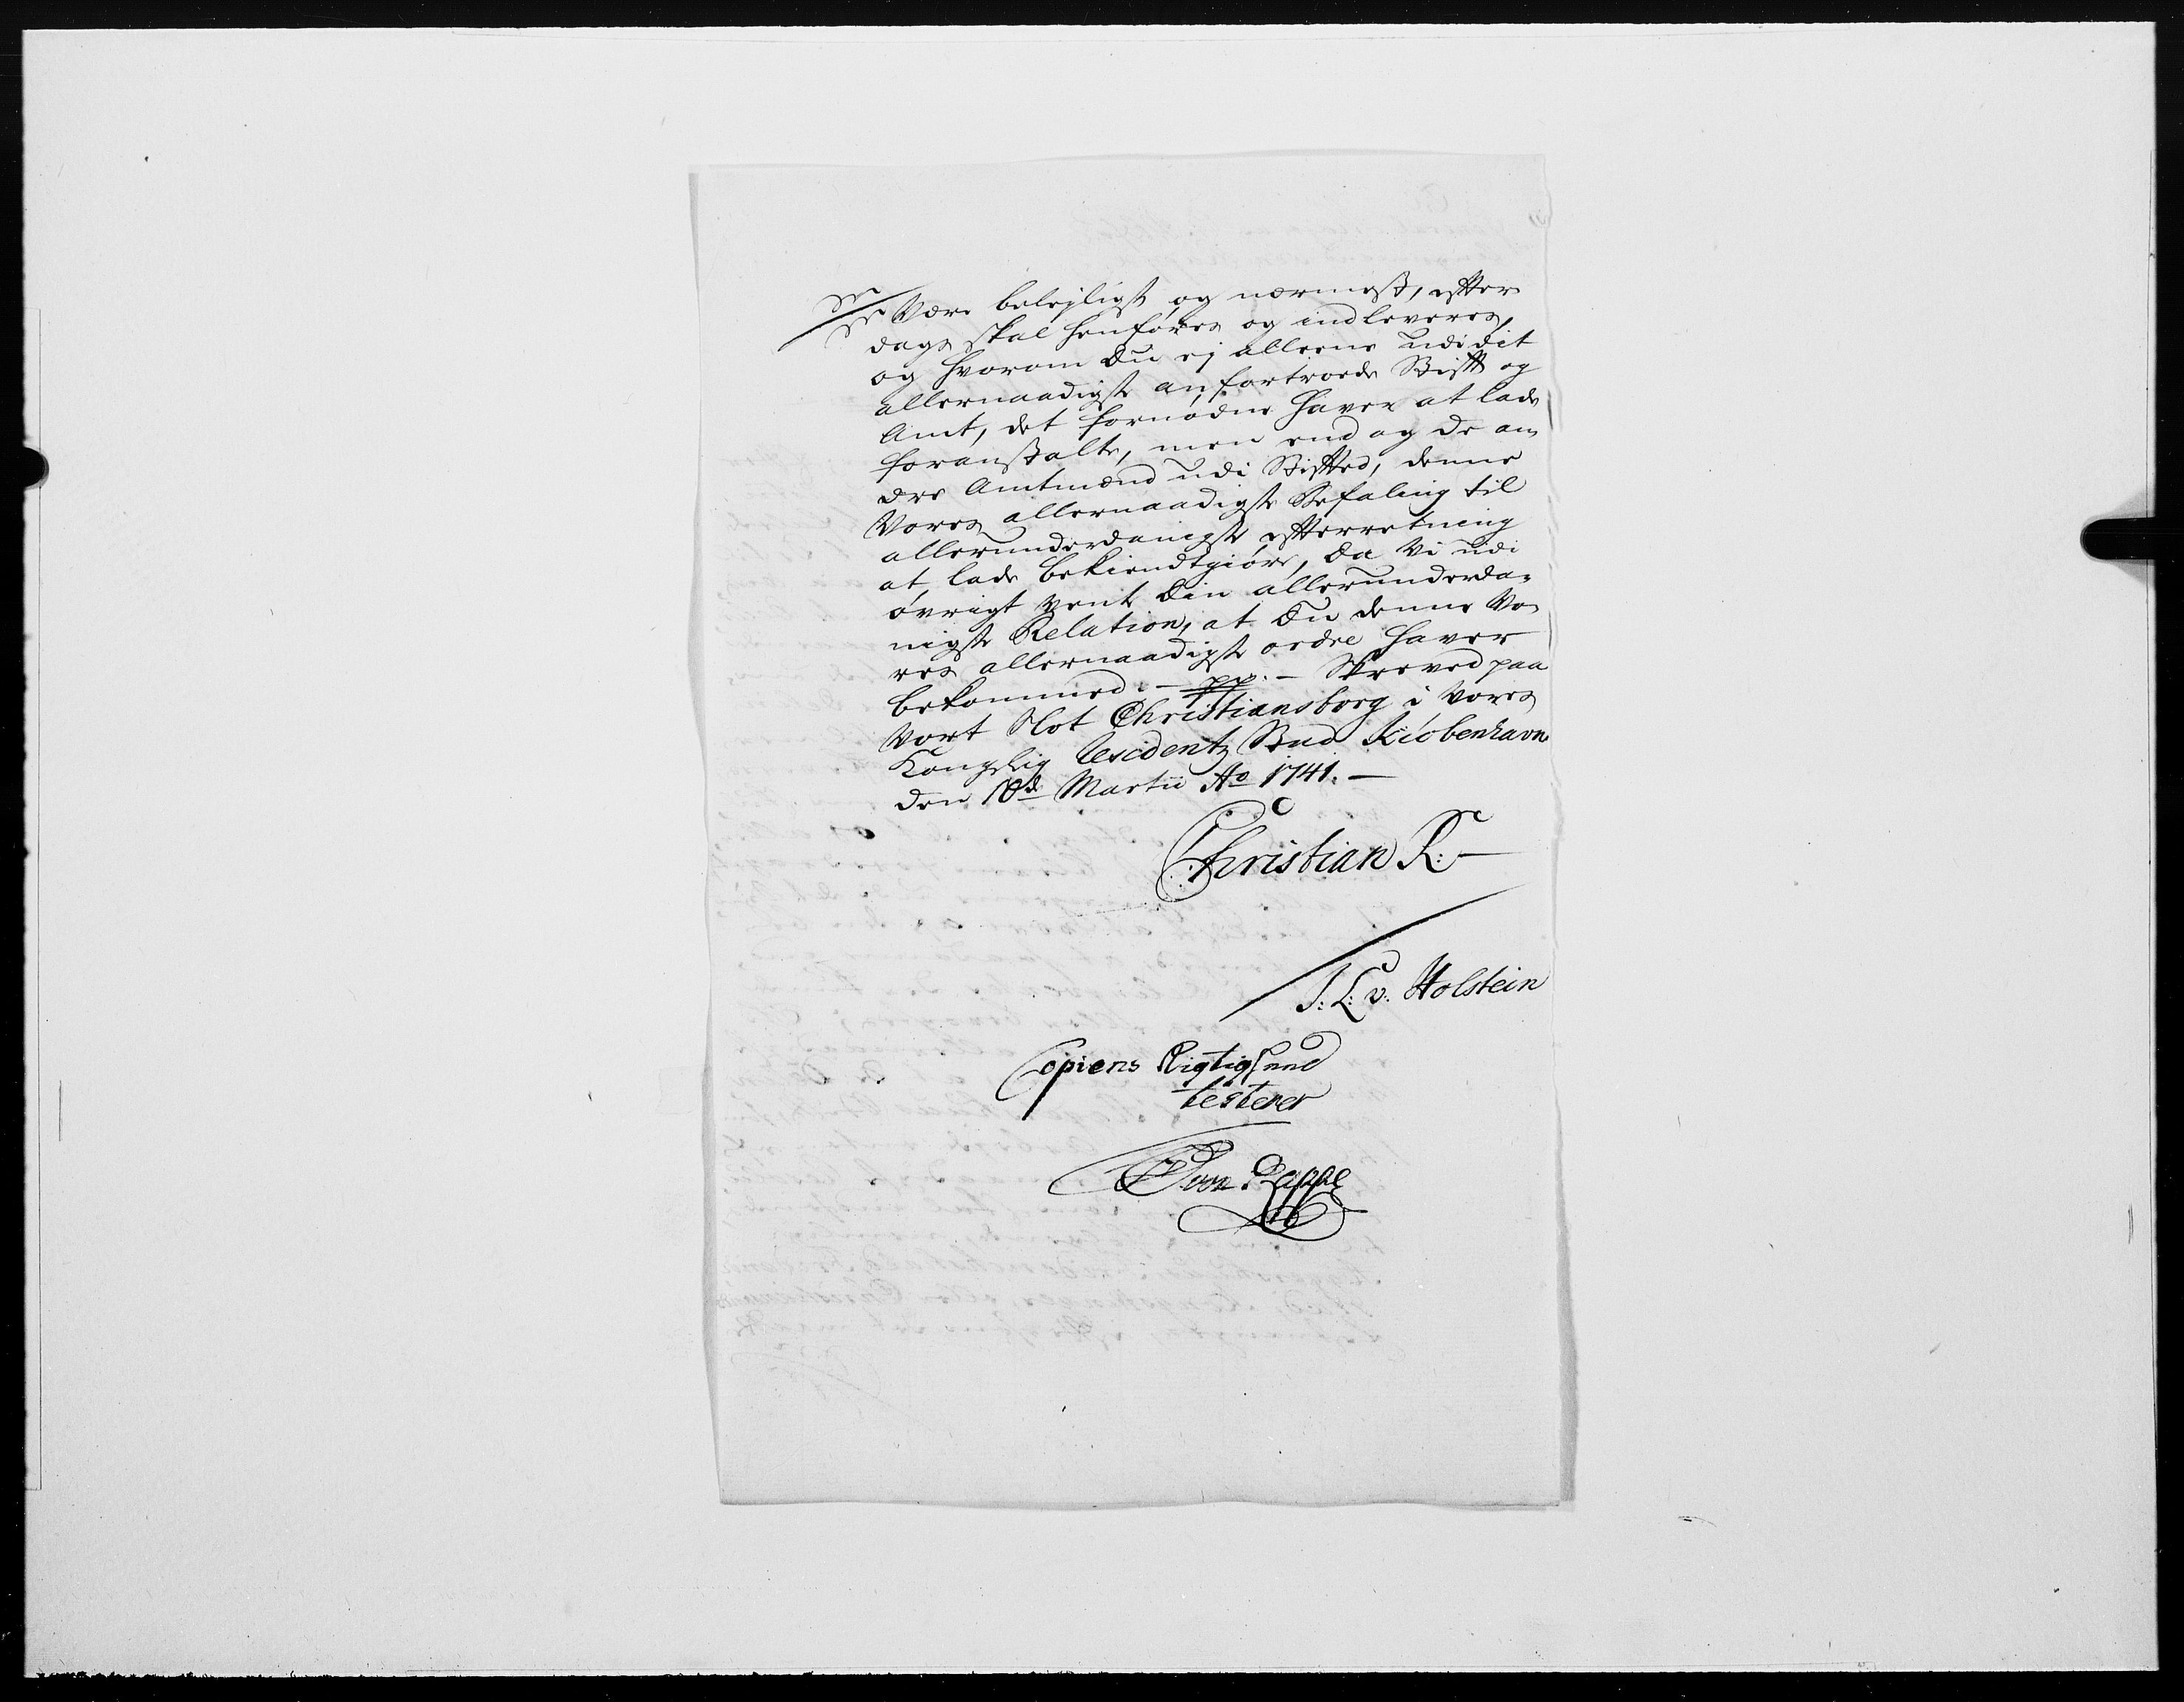 Være belejligst og nærmest, efter
dags skal henføres og indleveres,
og hvorom Du ej alleene udi dit
allernaadigst anfortroede Stift og
Amt, det fornødne haver at lade
foranstalte, men end og de an¬
dre Amtmænd udi Stiftet, denne
Vores allernaadigste Befaling til
allerunderdanigst efterretning
at lade bekiendtgiøre, da Vi udi
øvrigt vente Din allerunderda¬
nigste Relation, at Du denne Vo¬
res allernaadigste ordre haver
bekommed. – pp. – Skreved paa
Vort Slot Christiansborg i Vores
Kongelig Residentz Stad Kiøbenhavn
den 10de Martii Ao 1741. –
Christian R: –
J: L: v: Holstein
Copiens Rigtighed
testerer
von Rappe